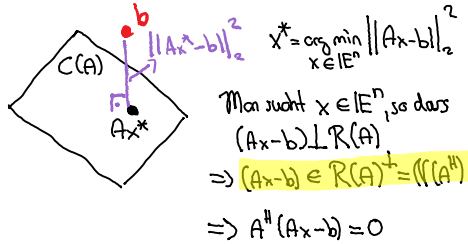 b
C(A)
||Ax*-b||₂²
Ax*
x* = arg min ||Ax-b||₂²
x∈𝔼ⁿ
Man sucht x∈𝔼ⁿ, so dass
(Ax-b)⊥R(A)
⇒ (Ax-b) ∈ R(A)^⊥ = N(A^H)
⇒ A^H(Ax-b)=0